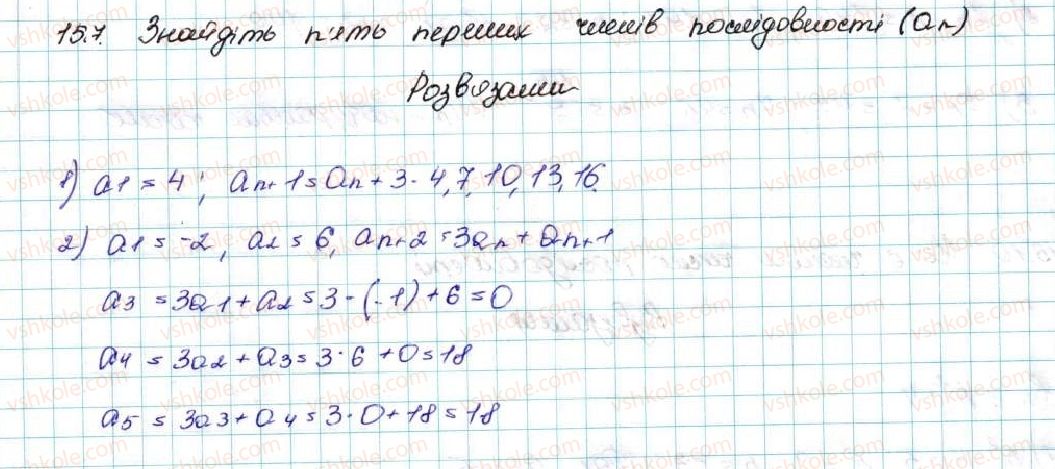 15.7. Знайдіть п'ять перших членів послідовності (an)
Розв'язання
1) a1 = 4; an+1 = an + 3. 4, 7, 10, 13, 16
2) a1 = -2, a2 = 6, an+2 = 3an + an+1
a3 = 3a1 + a2 = 3 · (-1) + 6 = 0
a4 = 3a2 + a3 = 3 · 6 + 0 = 18
a5 = 3a3 + a4 = 3 · 0 + 18 = 18